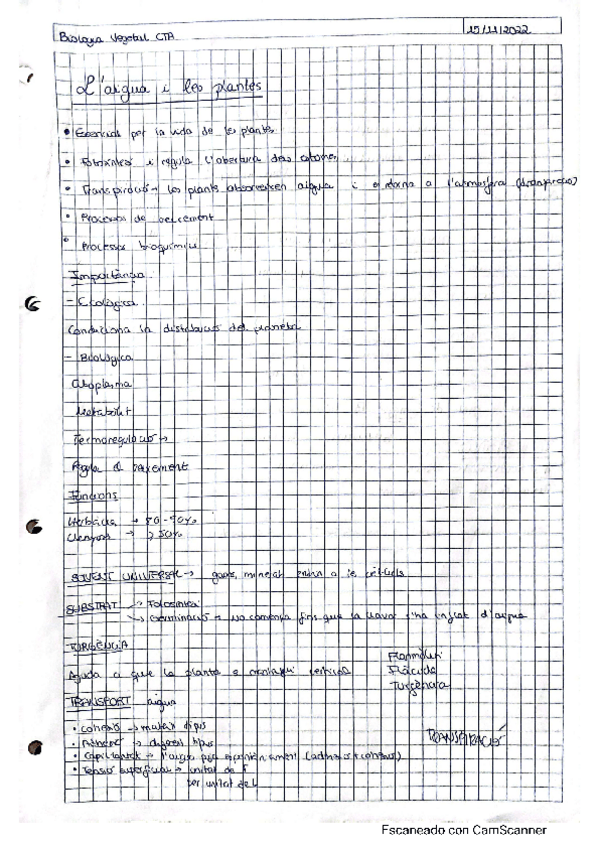 Biologia Vegetal CTA 15/11/2022
L'aigua i les plantes
• Esencial per la vida de les plantes
• Fotosíntesi i regula l'obertura dels estomes
• Transpiració → les plantes absorveixen aigua i es retorna a l'atmosfera (transpiració)
• Processos de creixement
• Processos bioquímics
Importància
- Ecològica
Condiciona la distribució del planeta
- Biològica
Citoplasma
Metabòlit
Termoregulació →
Regula el creixement
Funcions
Herbàcia → 80-90%
Llenyosa → >50%
SOLVENT UNIVERSAL → gasos, minerals entra a les cèl·lules
SUBSTRAT → Fotosíntesi
→ Germinació → no comença fins que la llavor s'ha inflat d'aigua
TURGÈNCIA
Ajuda a que la planta es mantingui vertical
Flàccida
Turgència
TRANSPORT aigua
• Cohesió → mateix tipus
• Adhesió → diferent tipus
• Capil·laritat → l'aigua puja espontàniament (adhesió + cohesió)
• Tensió superficial → unitat de F
per unitat de L
TRANSPIRACIÓ
Escaneado con CamScanner